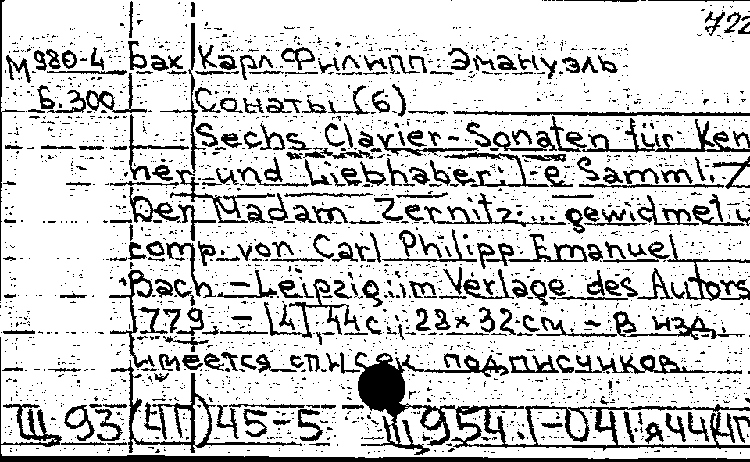 722
М 980-4 Бах Карл Филипп Эмануэль
Б. 300 Сонаты (6)
Sechs Clavier-Sonaten für Ken
ner und Liebhaber: 1-e Samml. /
Der Madam Zernitz ... gewidmet u
comp. von Carl Philipp Emanuel
Bach. - Leipzig: im Verlage des Autors
1779. - [4], 44 с.; 23×32 см. - В изд.
имеется список подписчиков.
Щ 93 (4Г) 45-5 Щ 954.1-041 я44(4Г